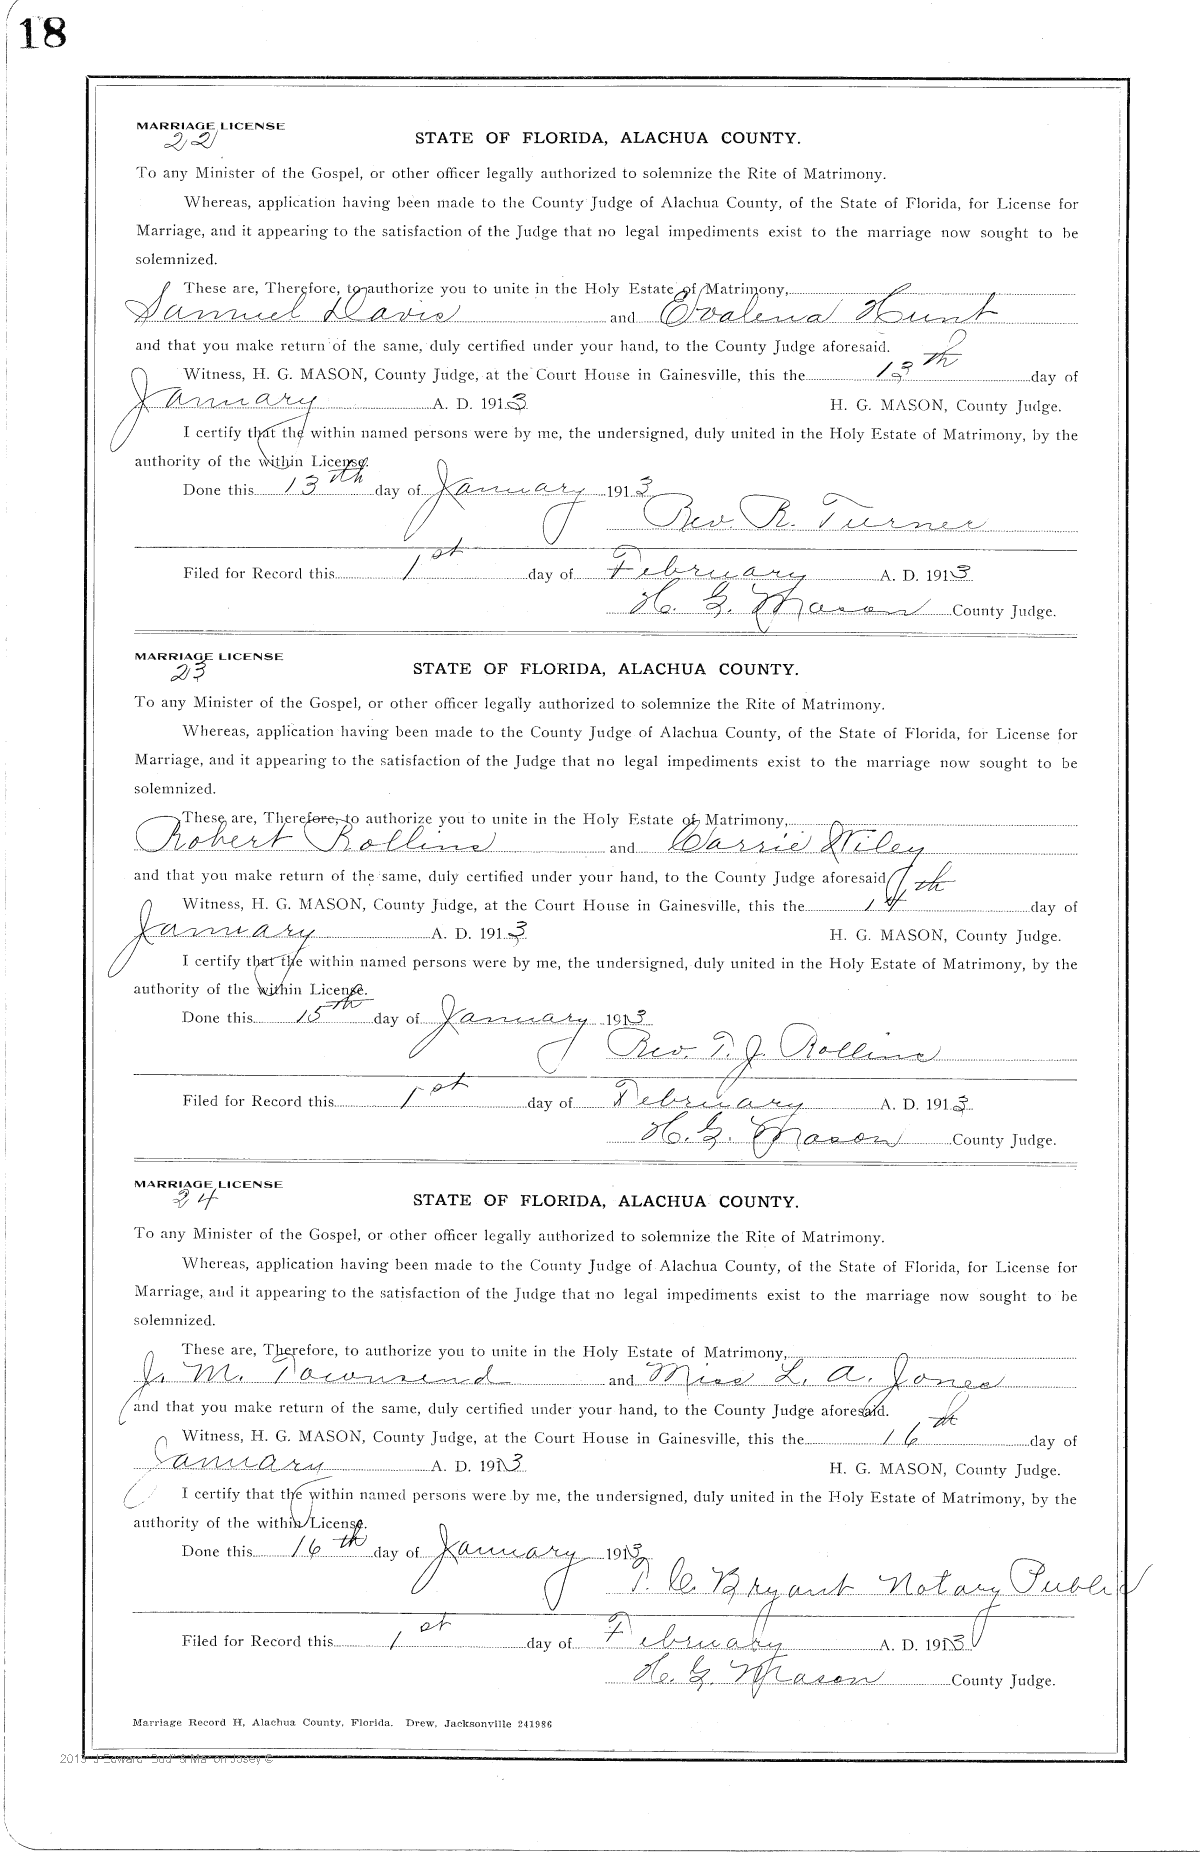 18
MARRIAGE LICENSE
22
STATE OF FLORIDA, ALACHUA COUNTY.
To any Minister of the Gospel, or other officer legally authorized to solemnize the Rite of Matrimony.
Whereas, application having been made to the County Judge of Alachua County, of the State of Florida, for License for
Marriage, and it appearing to the satisfaction of the Judge that no legal impediments exist to the marriage now sought to be
solemnized.
These are, Therefore, to authorize you to unite in the Holy Estate of Matrimony,
Samuel Davis and Evalena Hunt
and that you make return of the same, duly certified under your hand, to the County Judge aforesaid.
Witness, H. G. MASON, County Judge, at the Court House in Gainesville, this the 13th day of
January A. D. 1913 H. G. MASON, County Judge.
I certify that the within named persons were by me, the undersigned, duly united in the Holy Estate of Matrimony, by the
authority of the within License.
Done this 13th day of January 1913
Rev. R. Turner
Filed for Record this 1st day of February A. D. 1913
H. G. Mason County Judge.
MARRIAGE LICENSE
23
STATE OF FLORIDA, ALACHUA COUNTY.
To any Minister of the Gospel, or other officer legally authorized to solemnize the Rite of Matrimony.
Whereas, application having been made to the County Judge of Alachua County, of the State of Florida, for License for
Marriage, and it appearing to the satisfaction of the Judge that no legal impediments exist to the marriage now sought to be
solemnized.
These are, Therefore, to authorize you to unite in the Holy Estate of Matrimony,
Robert Rollins and Carrie Wiley
and that you make return of the same, duly certified under your hand, to the County Judge aforesaid
Witness, H. G. MASON, County Judge, at the Court House in Gainesville, this the 14th day of
January A. D. 1913 H. G. MASON, County Judge.
I certify that the within named persons were by me, the undersigned, duly united in the Holy Estate of Matrimony, by the
authority of the within License.
Done this 15th day of January 1913
Rev. T. J. Rollins
Filed for Record this 1st day of February A. D. 1913
H. G. Mason County Judge.
MARRIAGE LICENSE
24
STATE OF FLORIDA, ALACHUA COUNTY.
To any Minister of the Gospel, or other officer legally authorized to solemnize the Rite of Matrimony.
Whereas, application having been made to the County Judge of Alachua County, of the State of Florida, for License for
Marriage, and it appearing to the satisfaction of the Judge that no legal impediments exist to the marriage now sought to be
solemnized.
These are, Therefore, to authorize you to unite in the Holy Estate of Matrimony,
J. M. Townsend and Miss L. A. Jones
and that you make return of the same, duly certified under your hand, to the County Judge aforesaid.
Witness, H. G. MASON, County Judge, at the Court House in Gainesville, this the 16th day of
January A. D. 1913 H. G. MASON, County Judge.
I certify that the within named persons were by me, the undersigned, duly united in the Holy Estate of Matrimony, by the
authority of the within License.
Done this 16th day of January 1913
T. C. Bryant Notary Public
Filed for Record this 1st day of February A. D. 1913
H. G. Mason County Judge.
Marriage Record H, Alachua County, Florida. Drew, Jacksonville 241986
J Edward "Bud" & Marion Josey ©